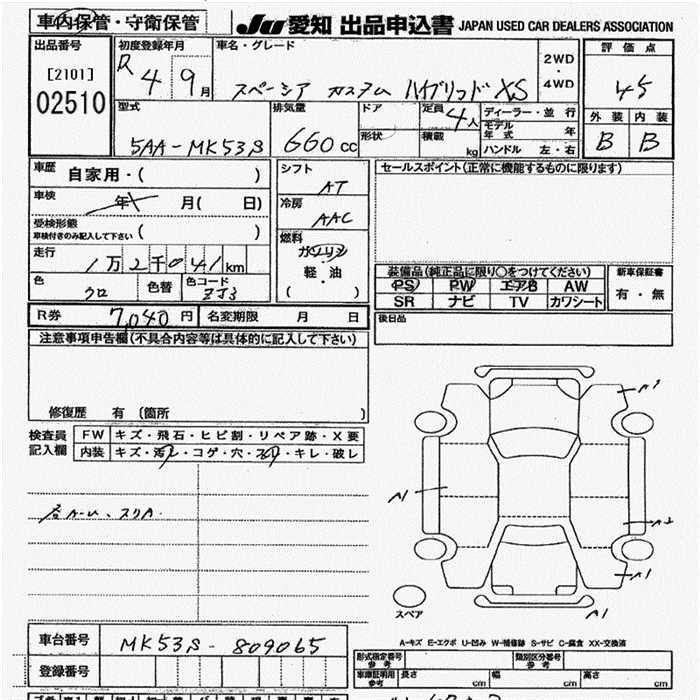 車内保管・守衛保管
JU 愛知 出品申込書 JAPAN USED CAR DEALERS ASSOCIATION
出品番号
[2101]
02510
初度登録年月
R 4 9月
車名・グレード
スペーシア カスタム ハイブリッド XS
2WD
・
4WD
評価点
4.5
外装 内装
B B
型式
5AA-MK53S
排気量
660cc
ドア
形状
定員
4人
積載
kg
ディーラー・並行
モデル年式 年
ハンドル 左・右
車歴
自家用・( )
車検
年 月( 日)
受検形態
車検付きのみ記入して下さい ( )
走行
1万2千041km
色
クロ
色替
色コード
ZJ3
シフト
AT
冷房
AAC
燃料
ガソリン
軽・油
( )
セールスポイント(正常に機能するものに限ります)
装備品(純正品に限り○をつけてください)
PS PW エアB AW
SR ナビ TV カワシート
新車保証書
有・無
R券 7,040円
名変期限 月 日
後日品
注意事項申告欄(不具合内容等は具体的に記入して下さい)
修復歴 有 〔箇所 〕
検査員
記入欄
FW キズ・飛石・ヒビ割・リペア跡・X要
内装 キズ・汚レ・コゲ・穴・スリ・キレ・破レ
A1
A2
A1
A1
スペア
A-キズ E-エクボ U-凹み W-補修跡 S-サビ C-腐食 XX-交換済
車台番号
MK53S-809065
登録番号
型式指定番号
参考
類別区分番号
参考
車庫証明用
参考
長さ cm
幅 cm
高さ cm